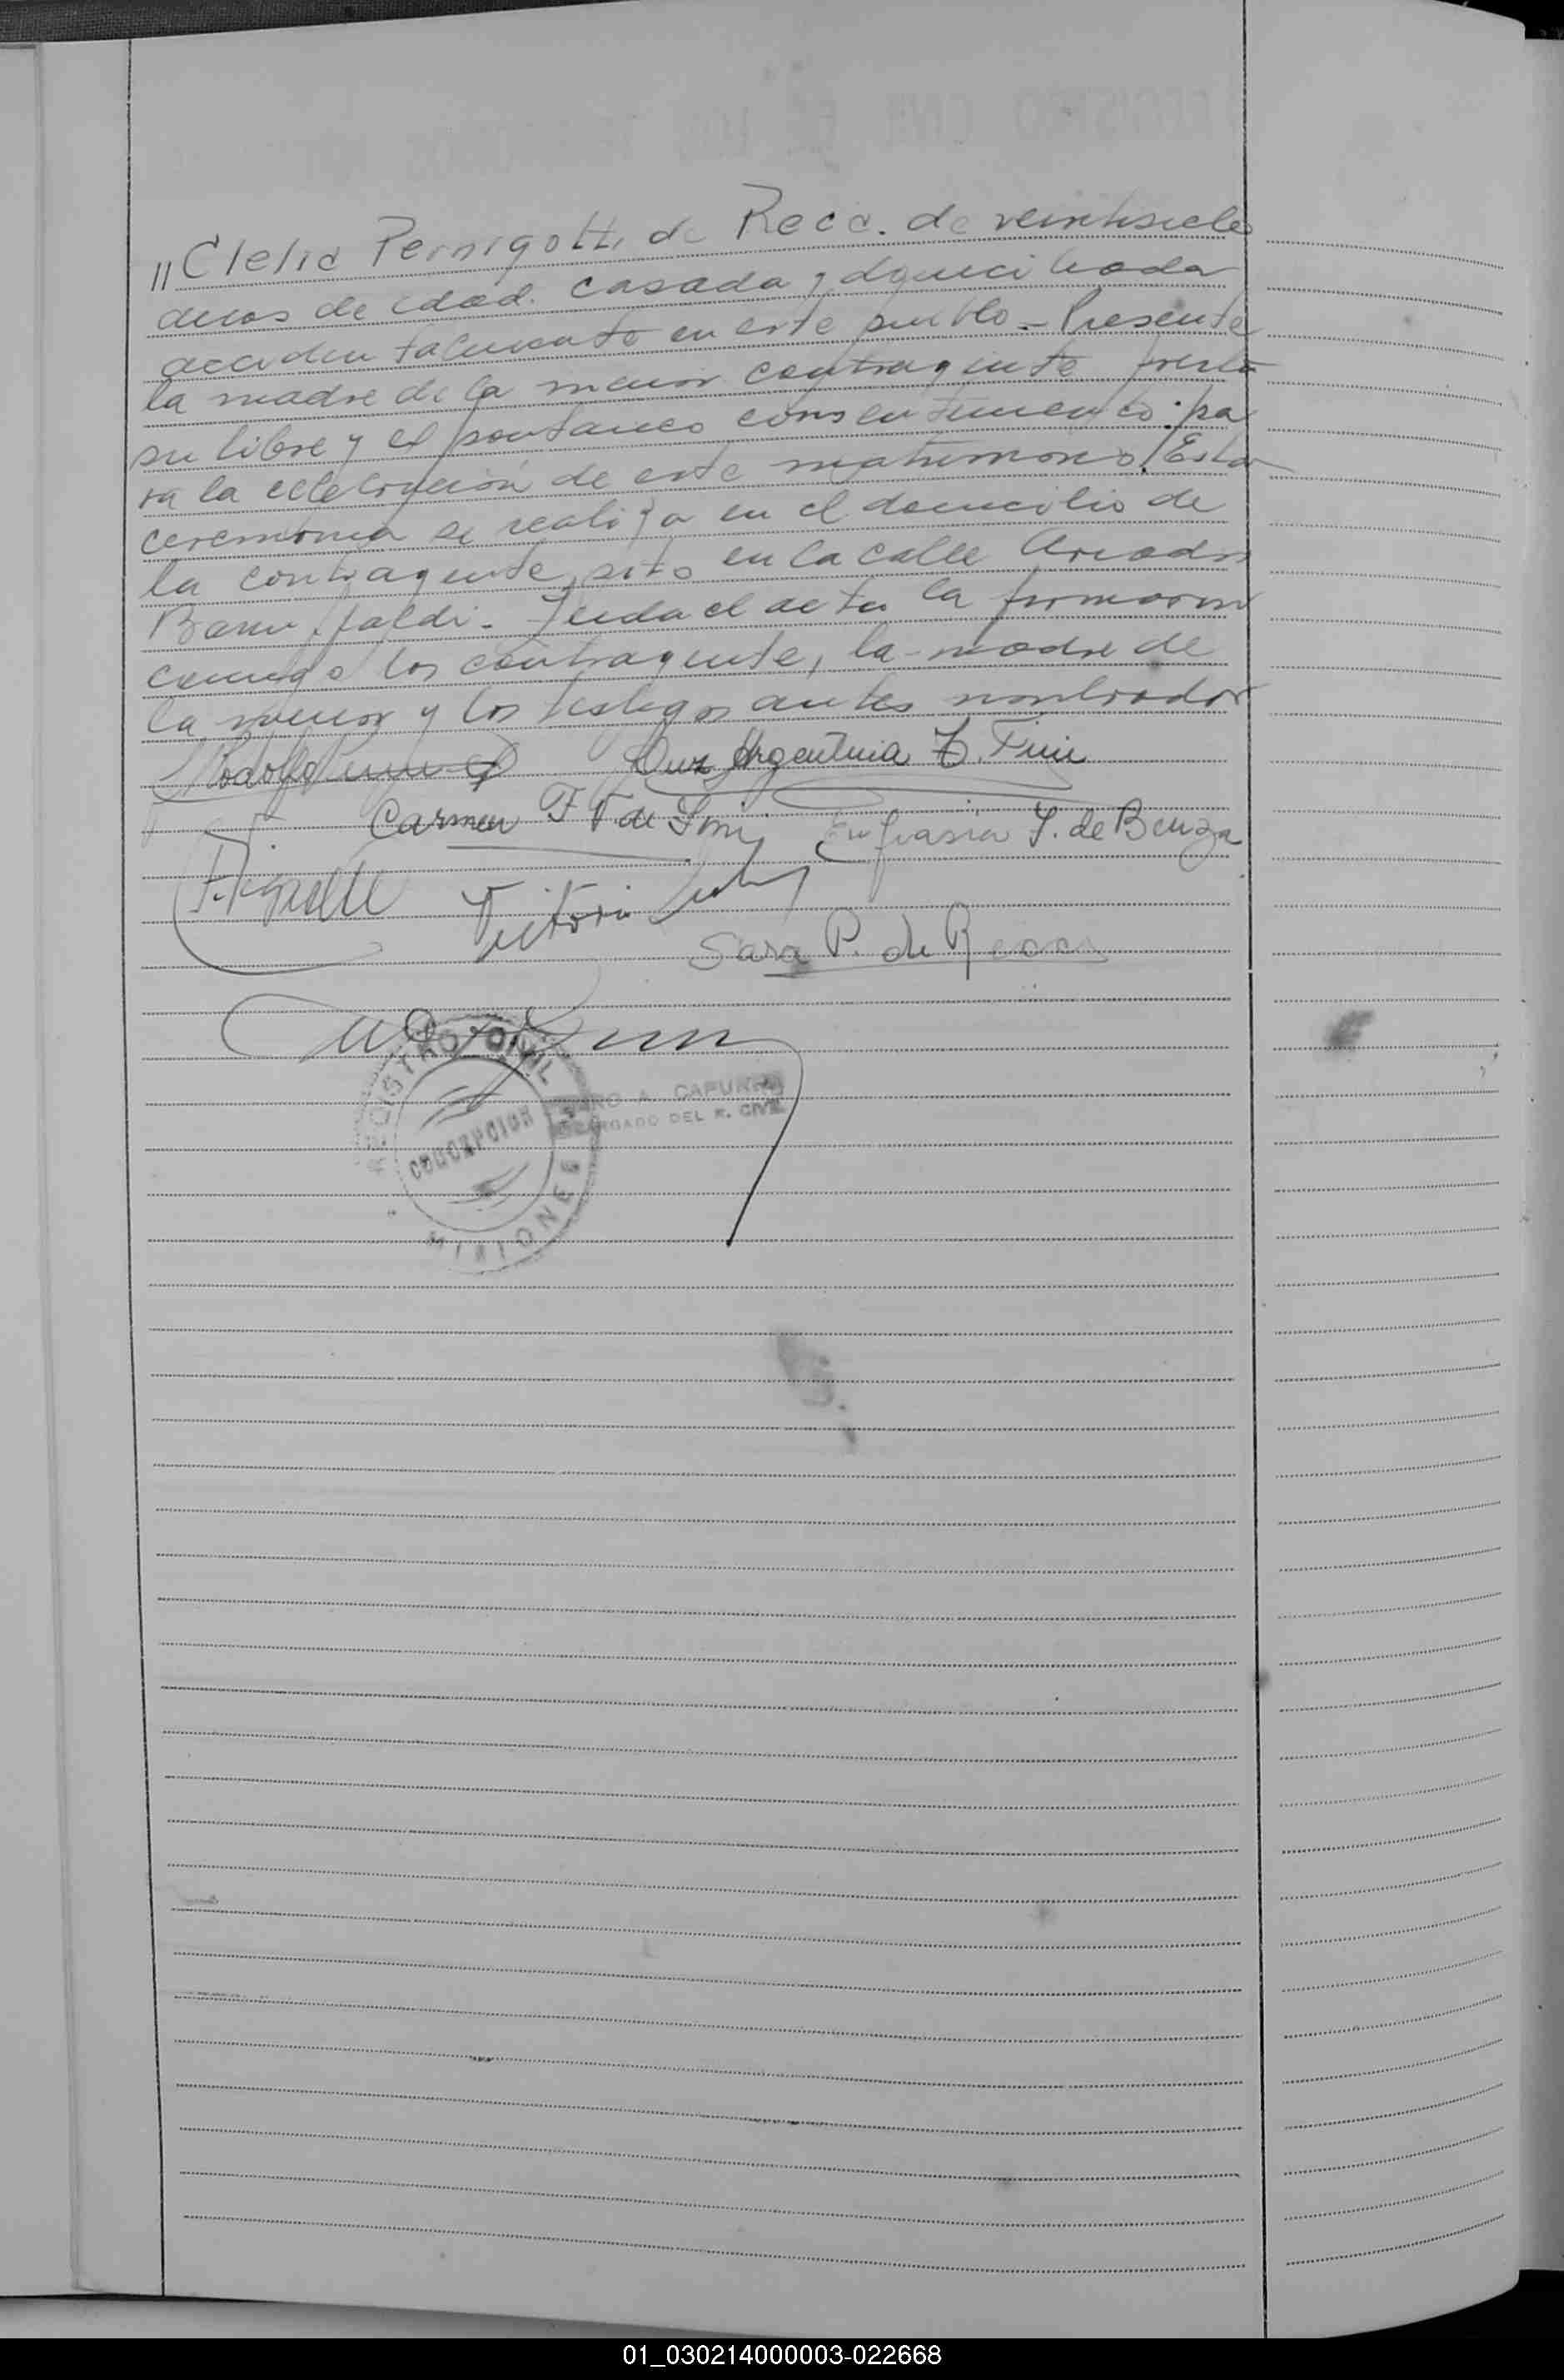 "Clelia Pernigotti de Recc. de veintisiete
años de edad. casada y domiciliada
accidentalmente en este pueblo - Presente
la madre de la menor contrayente presta
su libre y espontaneo consentimiento pa
ra la celebración de este matrimonio. Esta
ceremonia se realiza en el domicilio de
la contrayente, sito en la calle
- Leida el acta la firmaron
conmigo los contrayente, la madre de
la menor y los testigos antes nombrados
Rodolfo Luz Argentina
Carmen F V. de Eufrasia F. de Benza
Sara P. de Recca
REGISTRO CIVIL
CONCEPCION
MISIONES
A. CAPURRO
ENCARGADO DEL R. CIVIL
01_030214000003-022668